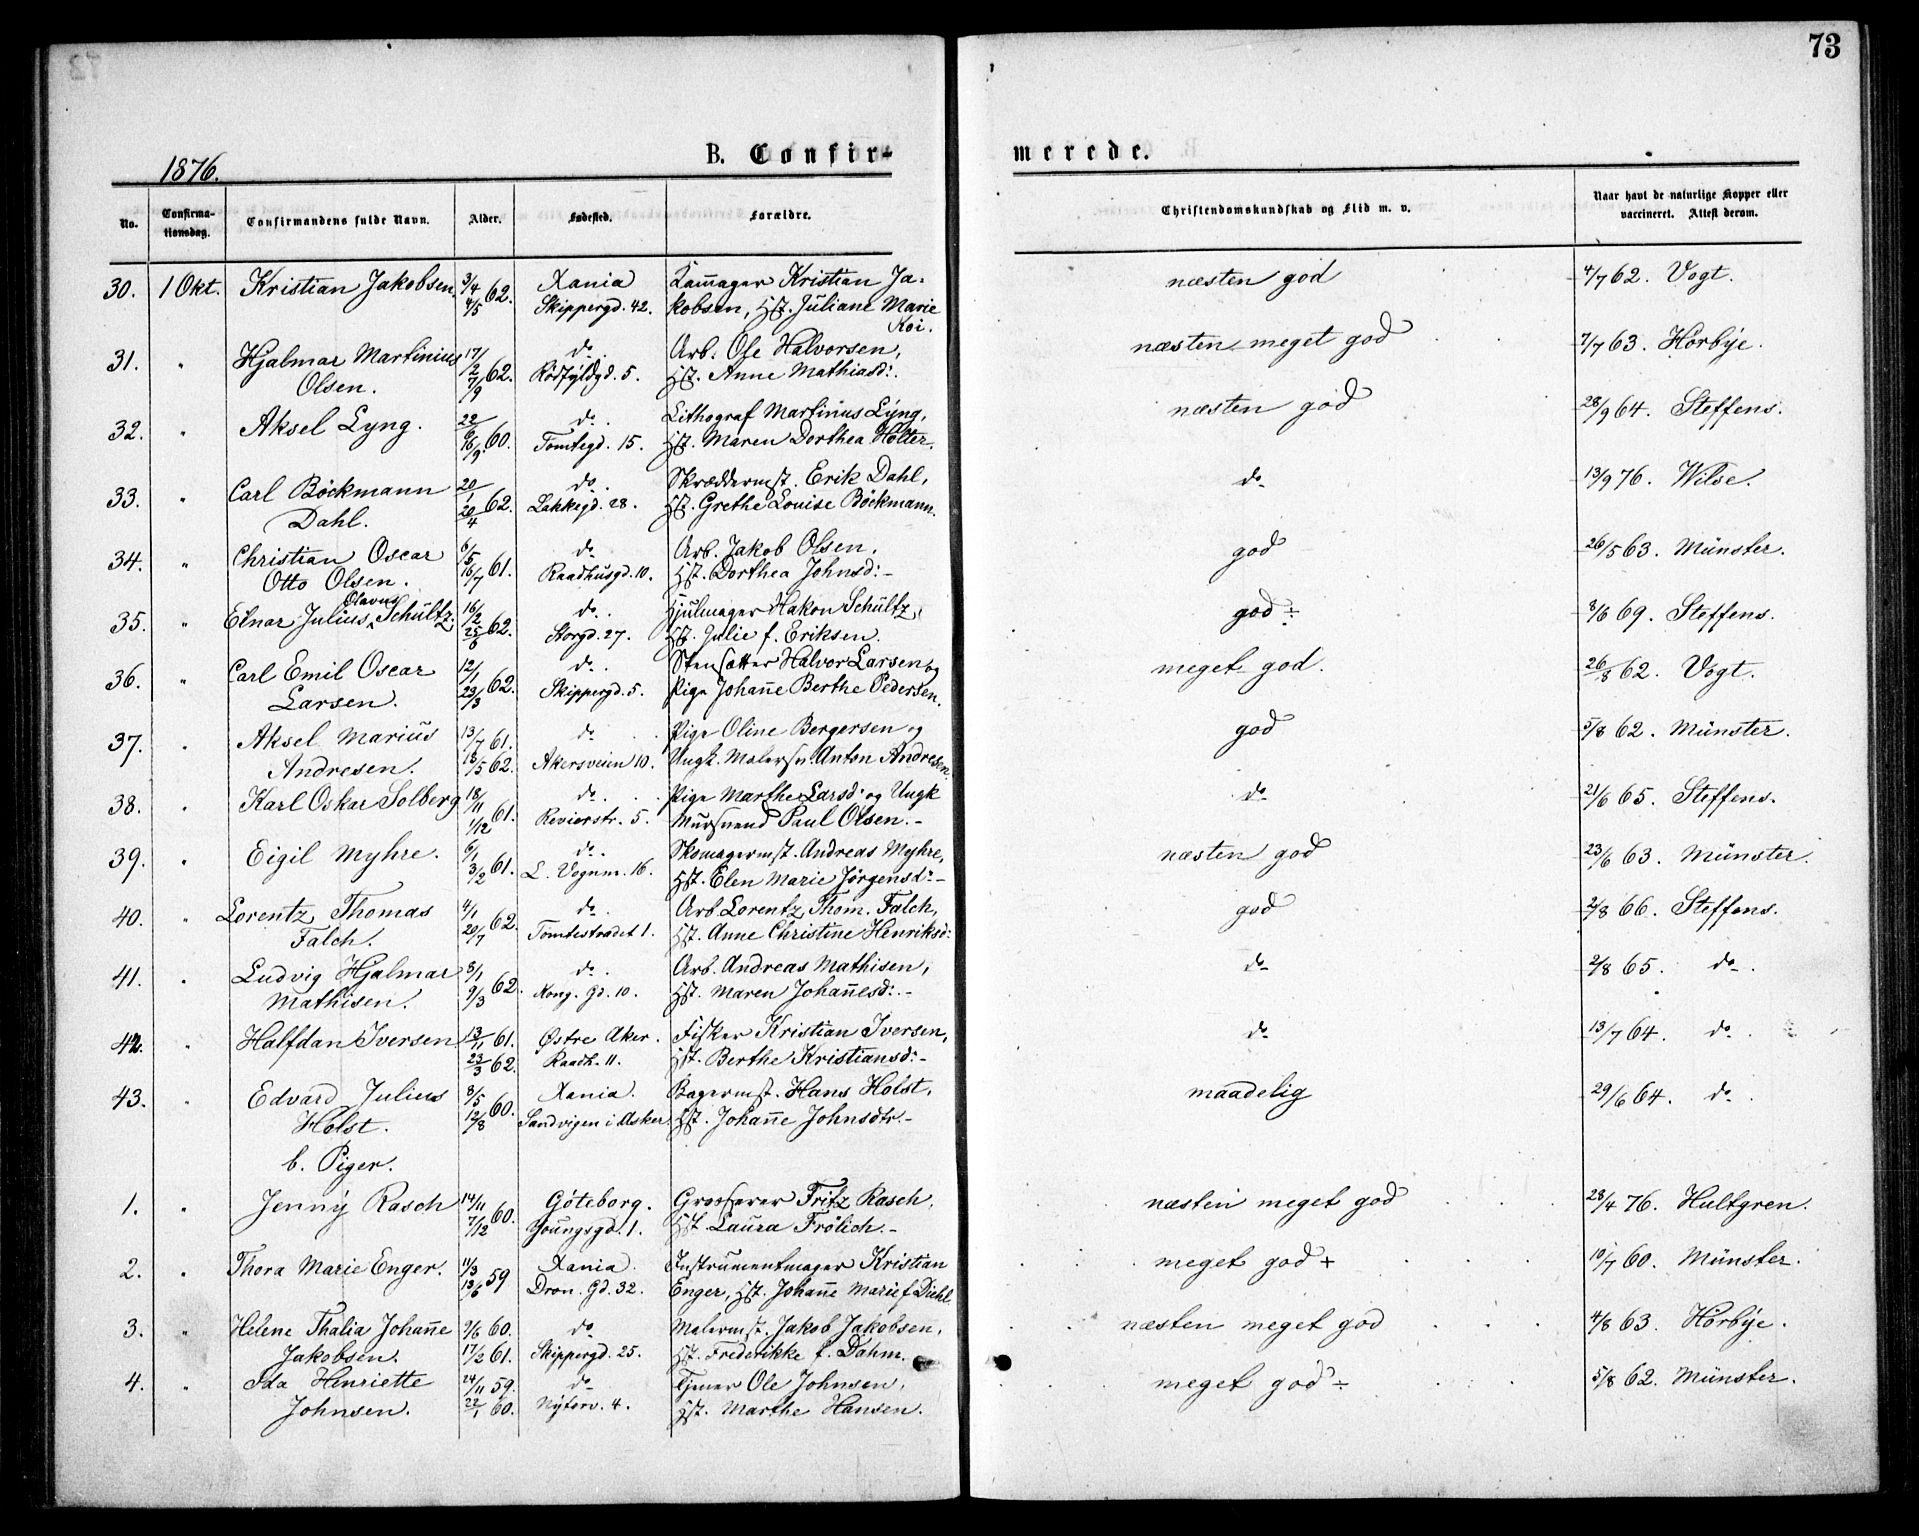 73
1876.
B. Confir-
merede.
No.
Confirma-
tionsdag.
Confirmandens fulde Navn.
Alder.
Fødested.
Forældre.
Christendomskundskab og Flid m. v.
Naar havt de naturlige Kopper eller
vaccineret. Attest derom.
30. 1 Okt. Kristian Jakobsen. 3/4 62. 4/5 Xania Kammager Kristian Ja- næsten god 4/7 62. Vogt.
Skippergd. 42. kobsen, Hst. Juliane Marie
Koi.
31. " Hjalmar Martinius 17/2 62. 7/9 do. Arb. Ole Halvorsen, næsten meget god 7/7 63. Horbye.
Olsen. Rödfyldgd. 5. Hst. Anne Mathiasd:
32. " Aksel Lyng. 22/6 60. 16/9 do. Lithograf Martinius Lyng, næsten god 28/9 64. Steffens.
Tomtegd. 15. Hst. Maren Dorthea Holter.
33. " Carl Böckmann 20/1 62. 20/4 do. Skræddermst. Erik Dahl, do 13/9 76. Wilse.
Dahl. Lakkegd. 28. Hst. Grethe Louise Böckmann.
34. " Christian Oscar 6/5 61. 16/7 do. Arb. Jakob Olsen, god 26/5 63. Münster.
Otto Olsen. Raadhusgd. 10. Hst. Dorthea Johnsd:-
Olavus
35. " Einar Julius Schültz. 16/2 62. 25/8 do. Hjulmager Hakon Schültz, god ÷ 8/6 69. Steffens.
Storgd. 27. Hst. Julie f. Eriksen.
36. " Carl Emil Oscar 12/1 62. 23/3 do. Stensætter Halvor Larsen og meget god. 26/8 62. Vogt.
Larsen. Skippergd. 5. Pige Johanne Berthe Pedersen.
37. " Aksel Marius 13/7 61. do. Pige Oline Bergersen og god 5/8 62. Münster.
Andresen. 18/5 62. Akersveien 10. Ungk. Malersv. Anton Andresen.
38. " Karl Oskar Solberg 18/11 61. 1/12 do. Pige Marthe Larsd: og Ungk do 21/6 65. Steffens.
Revierstr. 5. Mursvend Paul Olsen.-
39. " Eigil Myhre. 6/1 61. 3/2 do. Skomagermst. Andreas Myhre, næsten god 23/6 63. Münster.
L. Vognm. 16. Hst. Elen Marie Jörgensd:-
40. " Lorentz Thomas 4/1 62. 20/7 do. Arb. Lorentz Thom. Falch, god 2/8 66. Steffens.
Falch. Tomtestrædet 1. Hst. Anne Christine Henriksd:
41. " Ludvig Hjalmar 8/1 62. 9/3 do. Arb. Andreas Mathisen, do 2/8 65. do.
Mathisen. Kong. Gd. 10. Hst. Maren Johannesd:-
42. " Halfdan Iversen 13/11 61. Østre Aker. Fisker Kristian Iversen, do 13/7 64. do.
23/3 62. Raadh. 11. Hst. Berthe Kristiansd:-
43. " Edvard Julius 8/5 60. 12/8 Xania. Bagermst. Hans Holst, maadelig 29/6 64. do.
Holst. Sandvigen i Asker Hst. Johanne Johnsdtr.-
b. Piger.
1. " Jenny Rasch 14/11 60. 7/12 Göteborg. Grosserer Fritz Rasch, næsten meget god 28/4 76. Hultgren.
Youngsgd. 1. Hst. Laura Frölich.-
2. " Thora Marie Enger. 11/3 59 13/6 Xania. Instrumentmager Kristian meget god + 10/7 60. Münster.
Dron. Gd. 32. Enger, Hst. Johanne Marie f. Diehl.
3. " Helene Thalia Johanne 9/6 60. do Malermst. Jakob Jakobsen, næsten meget god 4/8 63. Horbye.
Jakobsen. 17/2 61. Skippergd. 25. Hst. Frederikke f. Dahm.
4. " Ida Henriette 24/11 59. do Tjener Ole Johnsen, meget god ÷ 5/8 62. Münster.
Johnsen. 22/1 60. Nytorv. 4. Hst. Marthe Hansen.